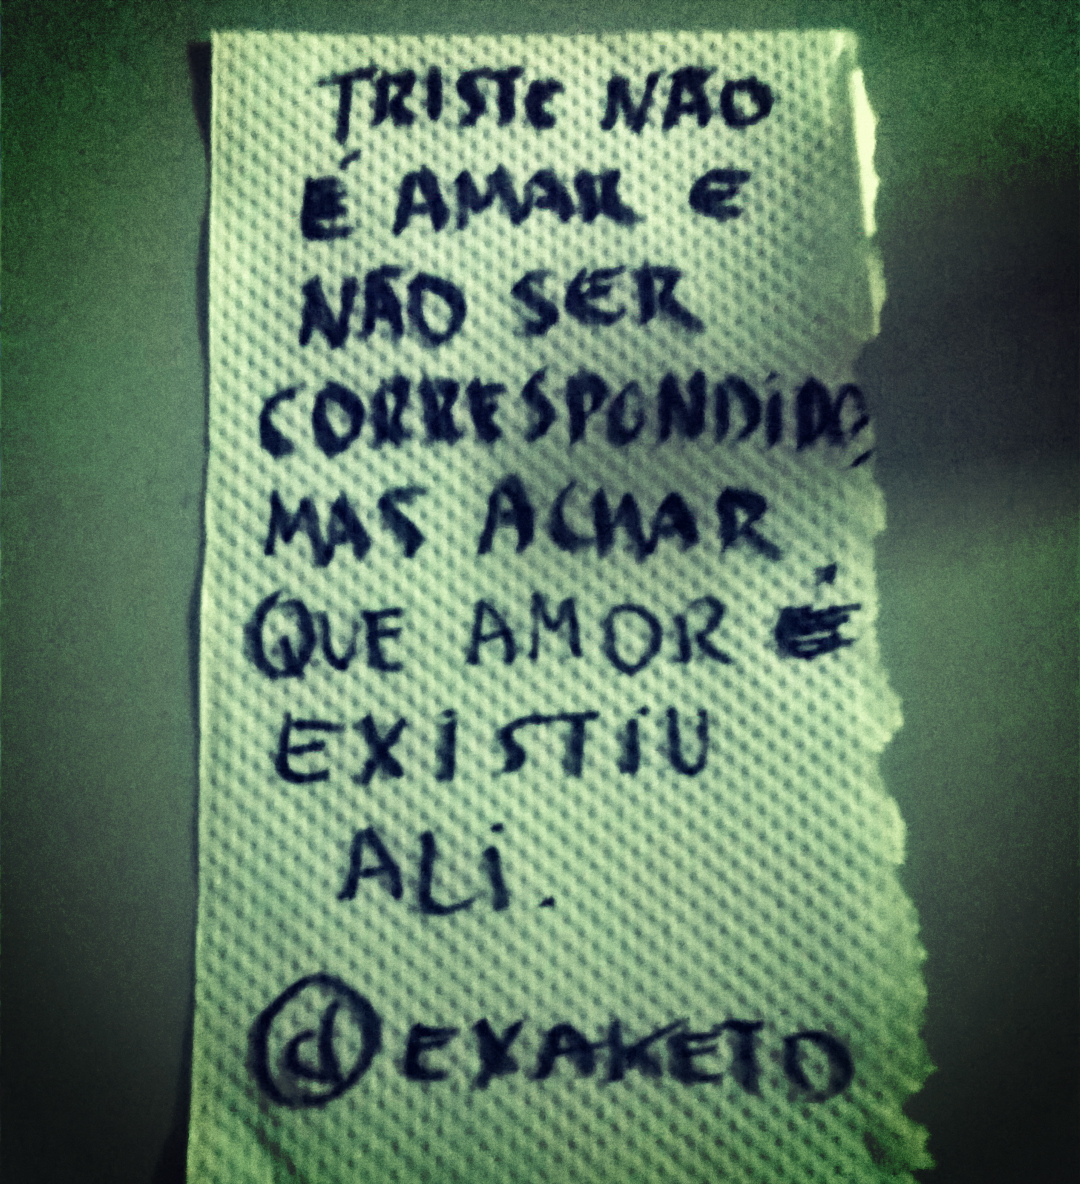 TRISTE NÃO
É AMAR E
NÃO SER
CORRESPONDIDO,
MAS ACHAR
QUE AMOR
EXISTIU
ALI.
@EXAKETO